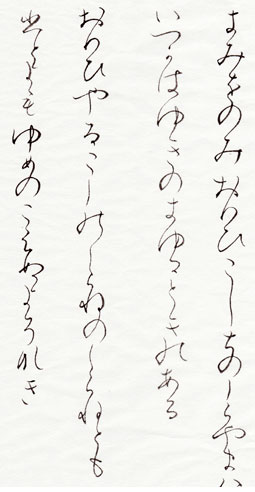 きみをのみおもひこしちのしらやまは
いつかはゆきのきゆるときのある
おもひやるこしのしらねのしらねとも
ひとよもゆめのこえぬよそなき